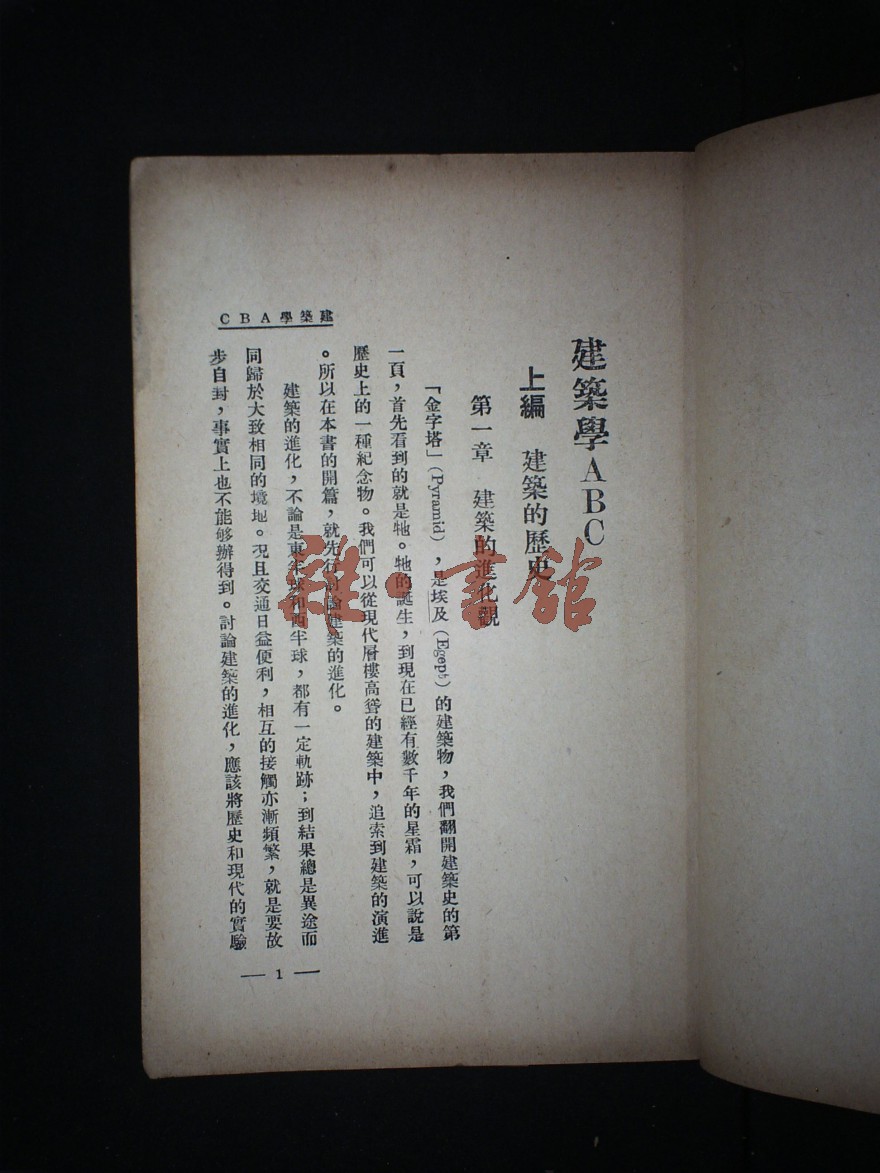 建築學ABC
上編　建築的歷史
第一章　建築的進化觀
「金字塔」(Pyramid)，是埃及(Egept)的建築物，我們翻開建築史的第
一頁，首先看到的就是牠。牠的誕生，到現在已經有數千年的星霜，可以說是
歷史上的一種紀念物。我們可以從現代層樓高聳的建築中，追索到建築的演進
。所以在本書的開篇，就先行討論建築的進化。
建築的進化，不論是東半球和西半球，都有一定軌跡；到結果總是異途而
同歸於大致相同的境地。況且交通日益便利，相互的接觸亦漸頻繁，就是要故
步自封，事實上也不能够辦得到。討論建築的進化，應該將歷史和現代的實驗
CBA學築建
— 1 —
雜·書館